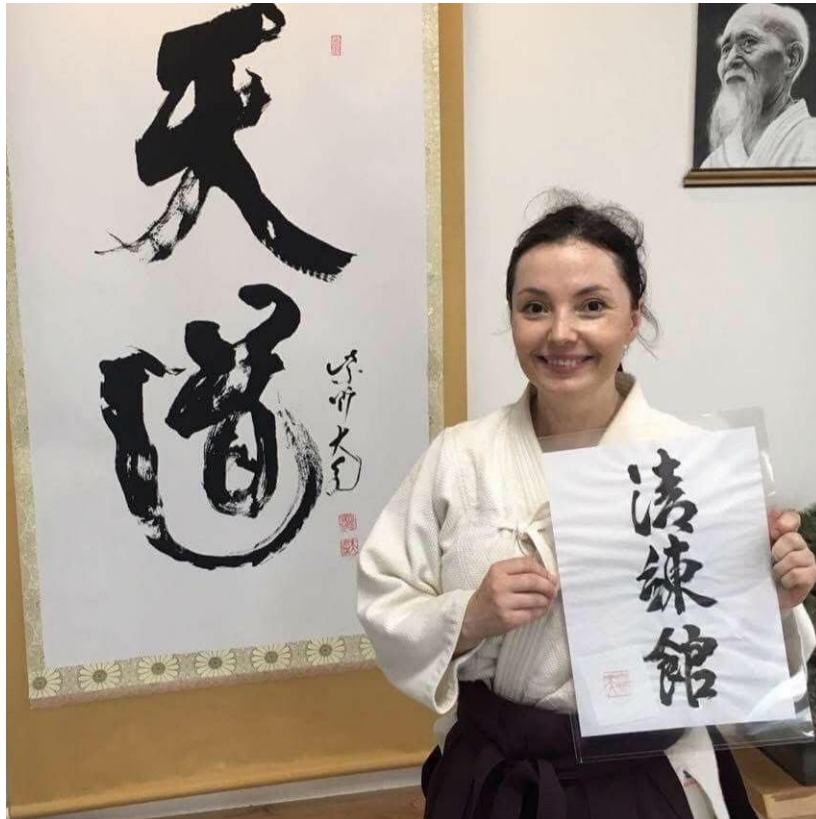 天道
清練館